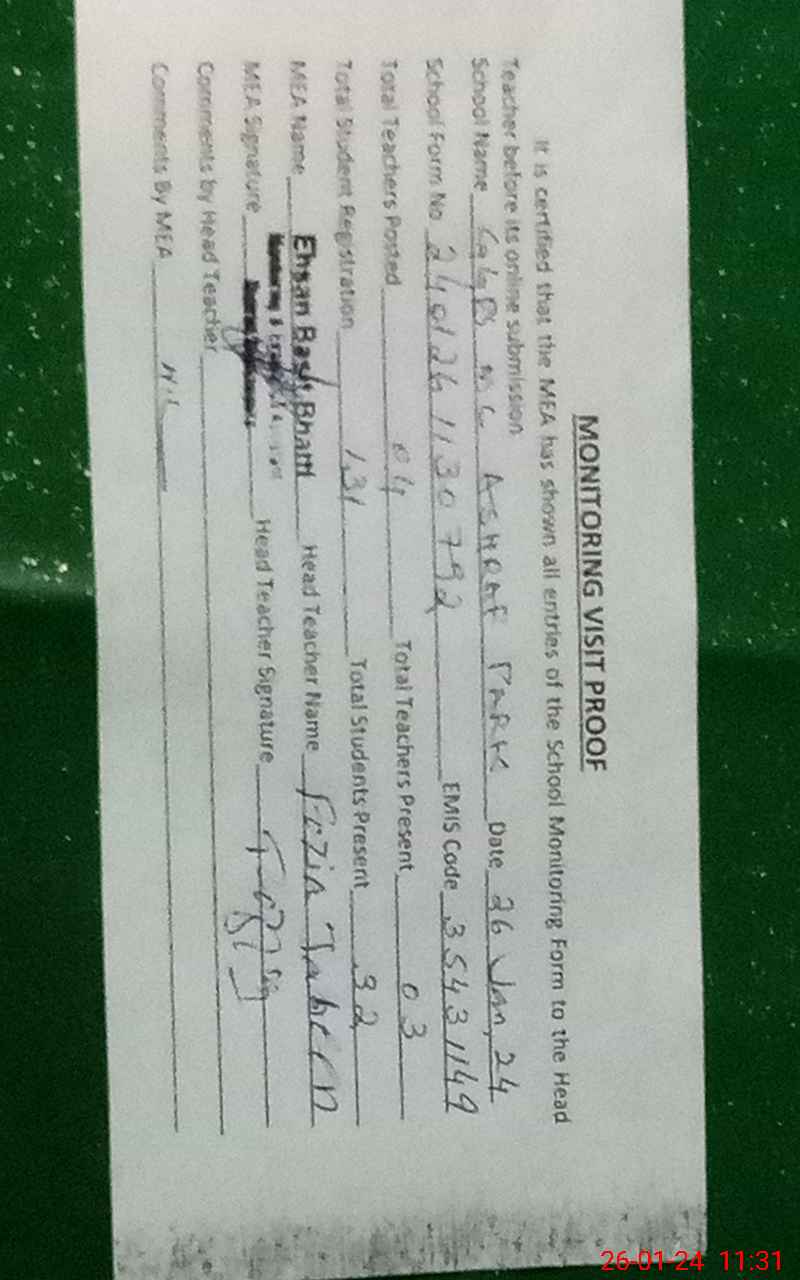 MONITORING VISIT PROOF
It is certified that the MEA has shown all entries of the School Monitoring Form to the Head
Teacher before its online submission
School Name MC ASHRAF PARK Date 26 Jan, 24
School Form No 2401261130792 EMIS Code 35431149
Total Teachers Posted 04 Total Teachers Present 03
Total Student Registration 131 Total Students Present 32
MEA Name Ehsan Basit Bhatti Head Teacher Name Fozia Tabeen
MEA Signature Head Teacher Signature
Comments by Head Teacher
Comments By MEA Nil
26-01-24 11:31